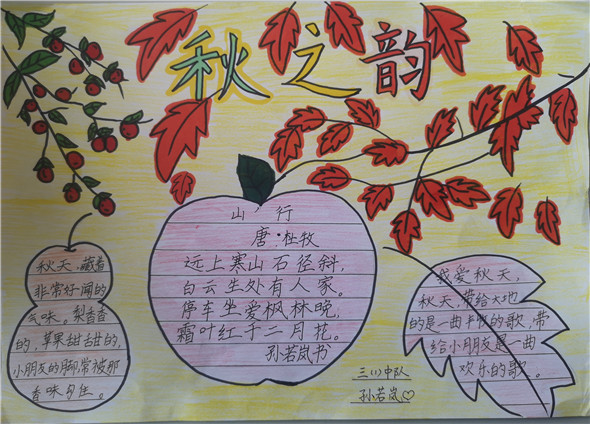 秋之韵
山行
唐·杜牧
远上寒山石径斜,
白云生处有人家。
停车坐爱枫林晚,
霜叶红于二月花。
孙若岚书
秋天,藏着
非常好闻的
气味。梨香香
的,苹果甜甜的,
小朋友的脚,常被那
香味勾住。
我爱秋天,
秋天,带给大地
的是一曲丰收的歌,带
给小朋友是一曲
欢乐的歌。
三(1)中队
孙若岚